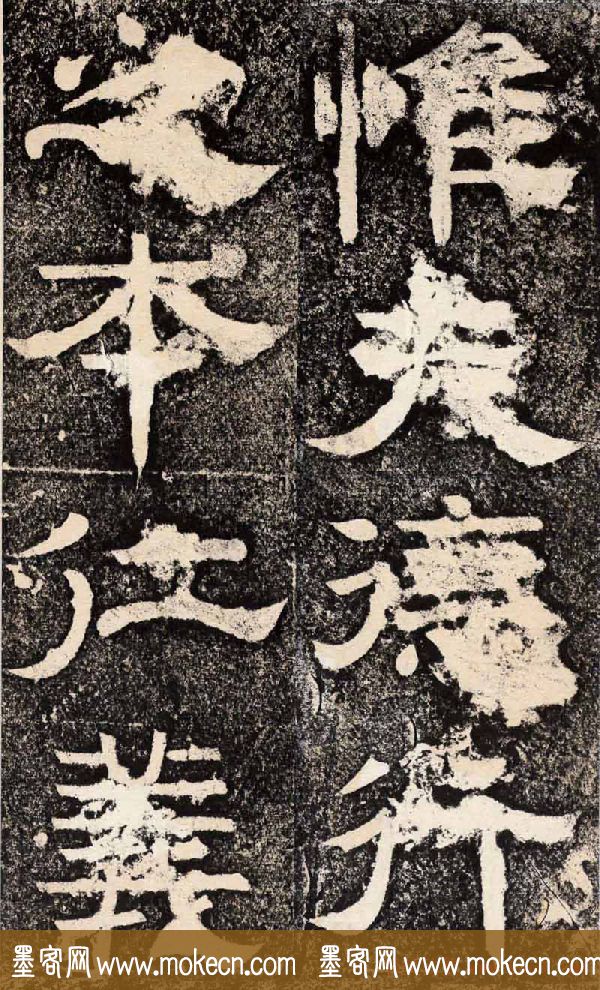 惟夫德行
之本仕義
墨客网 www.mokecn.com 墨客网 www.mokecn.com